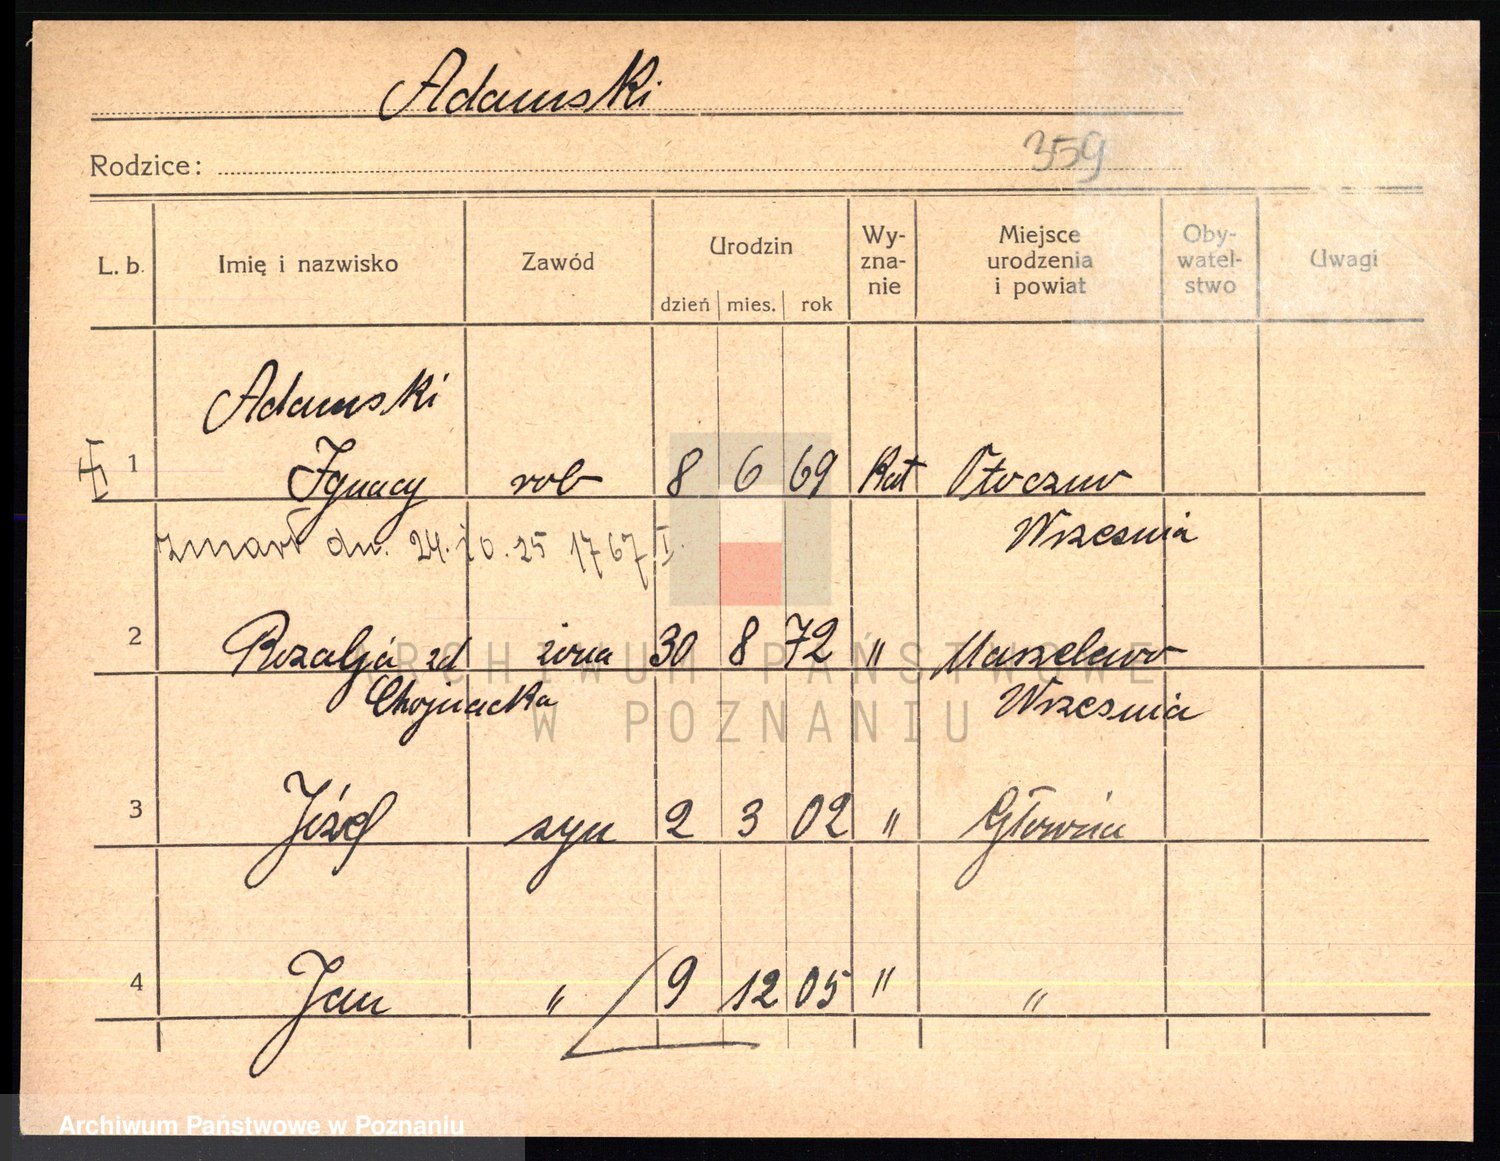 Adamski
Rodzice:
359
L. b. Imię i nazwisko Zawód Urodzin Wy-zna-nie Miejsce urodzenia i powiat Oby-watel-stwo Uwagi
dzień mies. rok
Adamski
1 Ignacy rob 8 6 69 Kat Otoczno
Wrzesnia
zmarł dn. 24.10.25 1767 I.
2 Rozalja zd żona 30 8 72 „
Chojnacka Wrzesnia
3 Józef syn 2 3 02 „ Główna
4 Jan „ 9 12 05 „ „
ARCHIWUM PAŃSTWOWE
W POZNANIU
Archiwum Państwowe w Poznaniu